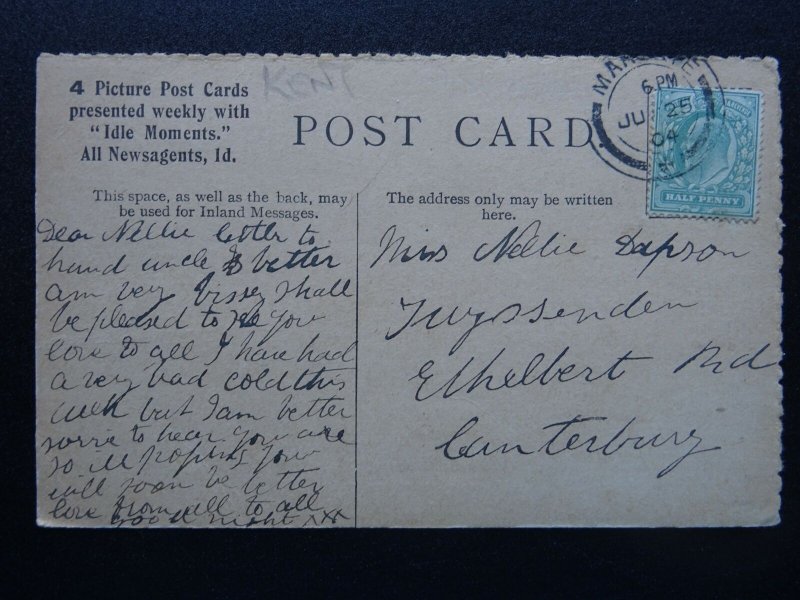 KENT
4 Picture Post Cards
presented weekly with
"Idle Moments."
All Newsagents, 1d.
POST CARD.
MARGATE
6 PM
JU 25
04
HALF PENNY
This space, as well as the back, may
be used for Inland Messages.
The address only may be written
here.
Dear Nellie letter to
hand uncle is better
am very bissey shall
be pleased to see you
love to all I have had
a very bad cold this
week but I am better
sorrie to hear you are
so ill hoping you
will soon be better
love from all to all
good night xxx
Miss Nellie Dapson
Twyssenden
Ethelbert Rd
Canterbury